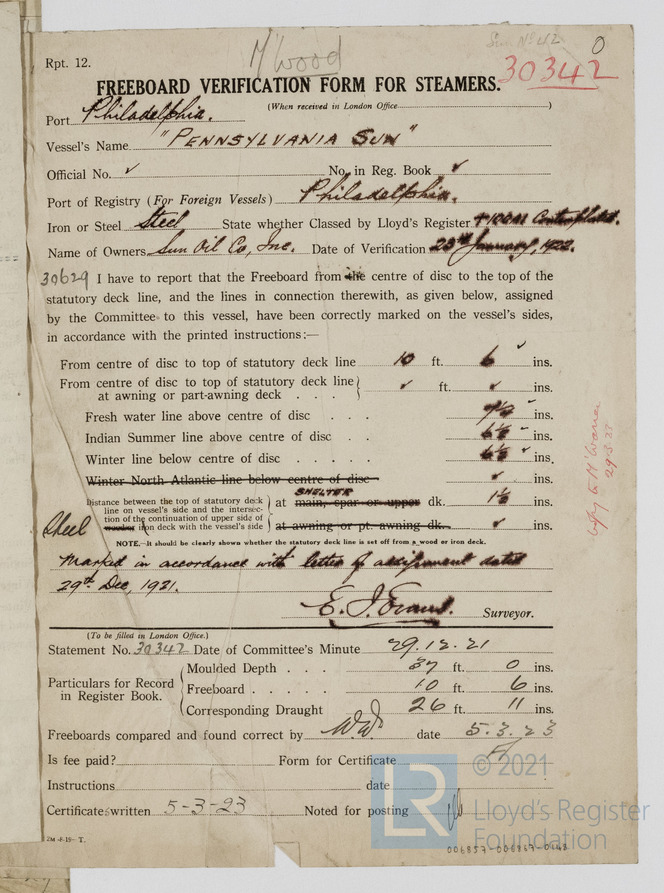 M'Wood
Sun No 42
0
Rpt. 12.
30342
FREEBOARD VERIFICATION FORM FOR STEAMERS.
(When received in London Office )
Port Philadelphia.
Vessel's Name "PENNSYLVANIA SUN"
Official No. ✓ No. in Reg. Book ✓
Port of Registry (For Foreign Vessels) Philadelphia.
Iron or Steel Steel State whether Classed by Lloyd's Register +100A1 Contemplated.
Name of Owners Sun Oil Co, Inc. Date of Verification January, 1922.
30629 I have to report that the Freeboard from the centre of disc to the top of the
statutory deck line, and the lines in connection therewith, as given below, assigned
by the Committee to this vessel, have been correctly marked on the vessel's sides,
in accordance with the printed instructions:—
From centre of disc to top of statutory deck line 10 ft. 6 ✓ ins.
From centre of disc to top of statutory deck line
at awning or part-awning deck . . . ✓ ft. ✓ ins.
Fresh water line above centre of disc . . . 7½ ✓ ins.
Indian Summer line above centre of disc . . 6½ ✓ ins.
Winter line below centre of disc . . . . . 6½ ✓ ins.
Winter North Atlantic line below centre of disc ✓ ins.
Distance between the top of statutory deck
line on vessel's side and the intersec-
tion of the continuation of upper side of
Steel wooden iron deck with the vessel's side
SHELTER
at main, spar or upper dk. 1½ ins.
at awning or pt. awning dk. ✓ ins.
NOTE.—It should be clearly shown whether the statutory deck line is set off from a wood or iron deck.
Marked in accordance with letter of assignment dated
29th Dec, 1921.
E. J. Evans. Surveyor.
(To be filled in London Office.)
Statement No. 30342 Date of Committee's Minute 29.12.21
Particulars for Record
in Register Book.
Moulded Depth . . . 37 ft. 0 ins.
Freeboard . . . . . 10 ft. 6 ins.
Corresponding Draught 26 ft. 11 ins.
Freeboards compared and found correct by date 5.3.23
Is fee paid? Form for Certificate
Instructions date
Certificates written 5-3-23 Noted for posting
2M -8-19- T.
29.3.22
© 2021
LR
Lloyd's Register
Foundation
006857-006867-0148